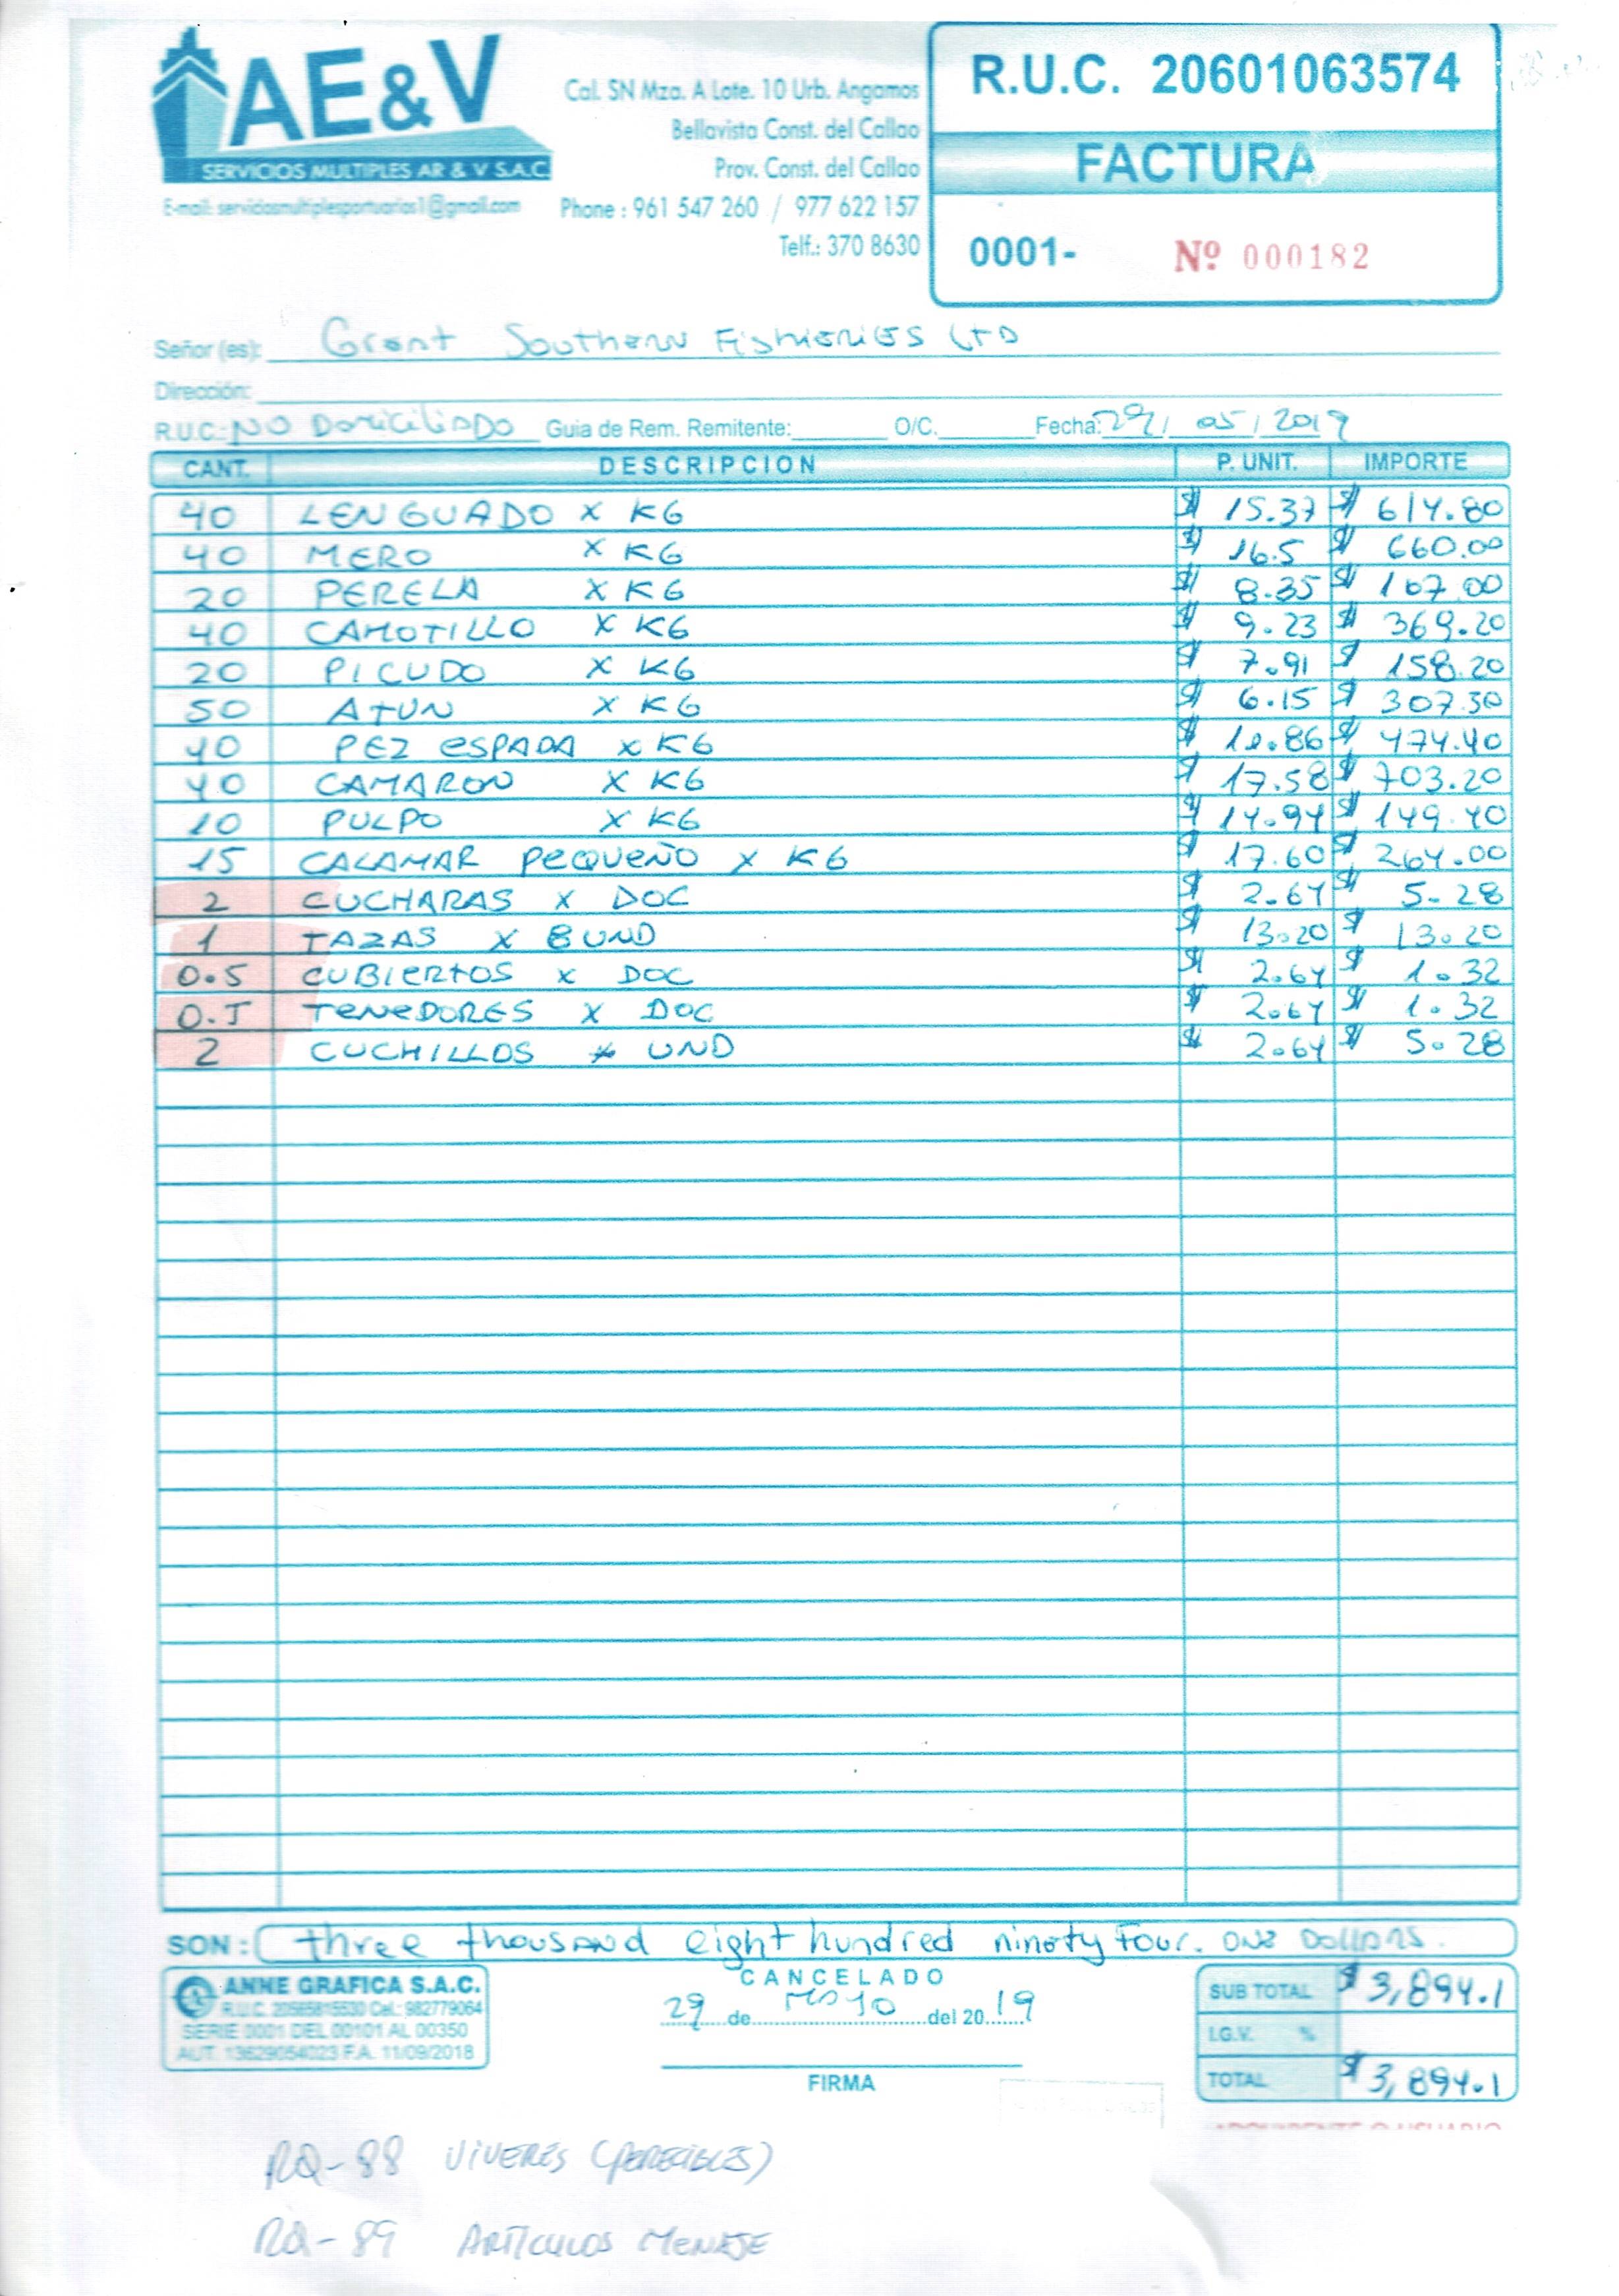 AE&V
SERVICIOS MULTIPLES AR & V S.A.C.
E-mail: serviciosmultiplesportuarios1@gmail.com
Cal. SN Mza. A Lote. 10 Urb. Angamos
Bellavista Const. del Callao
Prov. Const. del Callao
Phone : 961 547 260 / 977 622 157
Telf.: 370 8630
R.U.C. 20601063574
FACTURA
0001- Nº 000182
Señor (es): Grant Southern Fishieries LTD
Dirección:
R.U.C.: NO DOMICILIADO Guia de Rem. Remitente: O/C. Fecha: 29/ 05 / 2019
CANT. DESCRIPCION P. UNIT. IMPORTE
40 LENGUADO x KG $ 15.37 $ 614.80
40 MERO x KG $ 16.5 $ 660.00
20 PERELA x KG $ 8.35 $ 167.00
40 CAMOTILLO x KG $ 9.23 $ 369.20
20 PICUDO x KG $ 7.91 $ 158.20
50 ATUN x KG $ 6.15 $ 307.50
40 PEZ ESPADA x KG $ 11.86 $ 474.40
40 CAMARON x KG $ 17.58 $ 703.20
10 PULPO x KG $ 14.94 $ 149.40
15 CALAMAR PEQUEÑO x KG $ 17.60 $ 264.00
2 CUCHARAS x DOC $ 2.64 $ 5.28
1 TAZAS x 8 UND $ 13.20 $ 13.20
0.5 CUBIERTOS x DOC $ 2.64 $ 1.32
0.5 TENEDORES x DOC $ 2.64 $ 1.32
2 CUCHILLOS x UND $ 2.64 $ 5.28
SON: three thousand eight hundred ninety four. one Dollars.
ANNE GRAFICA S.A.C.
R.U.C. 20565815530 Cel.: 982779064
SERIE 0001 DEL 00101 AL 00350
AUT. 13629054023 F.A. 11/09/2018
CANCELADO
29 de Mayo del 2019
FIRMA
SUB TOTAL $ 3,894.1
I.G.V. %
TOTAL $ 3,894.1
RQ-88 VIVERES (PERECIBLES)
RQ-89 ARTÍCULOS MENAJE